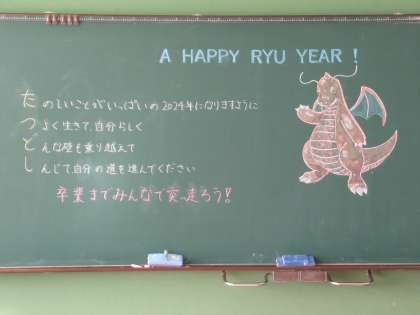 A HAPPY RYU YEAR !
たのしいことがいっぱいの2024年になりますように
つよく生きて、自分らしく
どんな壁も乗り越えて
しんじて自分の道を進んでください
卒業までみんなで突っ走ろう!